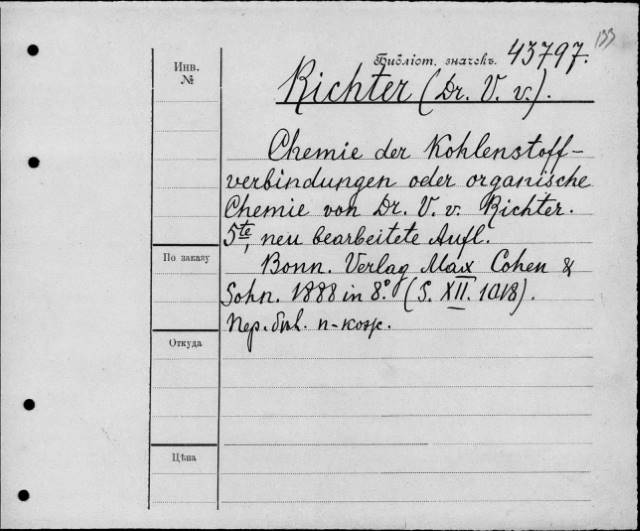 133
Библіот. значекъ. 43797.
Инв.
№
Richter (Dr. V. v.).
Chemie der Kohlenstoff-
verbindungen oder organische
Chemie von Dr. V. v. Richter.
5te, neu bearbeitete Aufl.
Bonn. Verlag Max Cohen &
Sohn. 1888 in 8°. (S. XII. 1018).
По заказу
Пер. п-кож.
Откуда
Цѣна